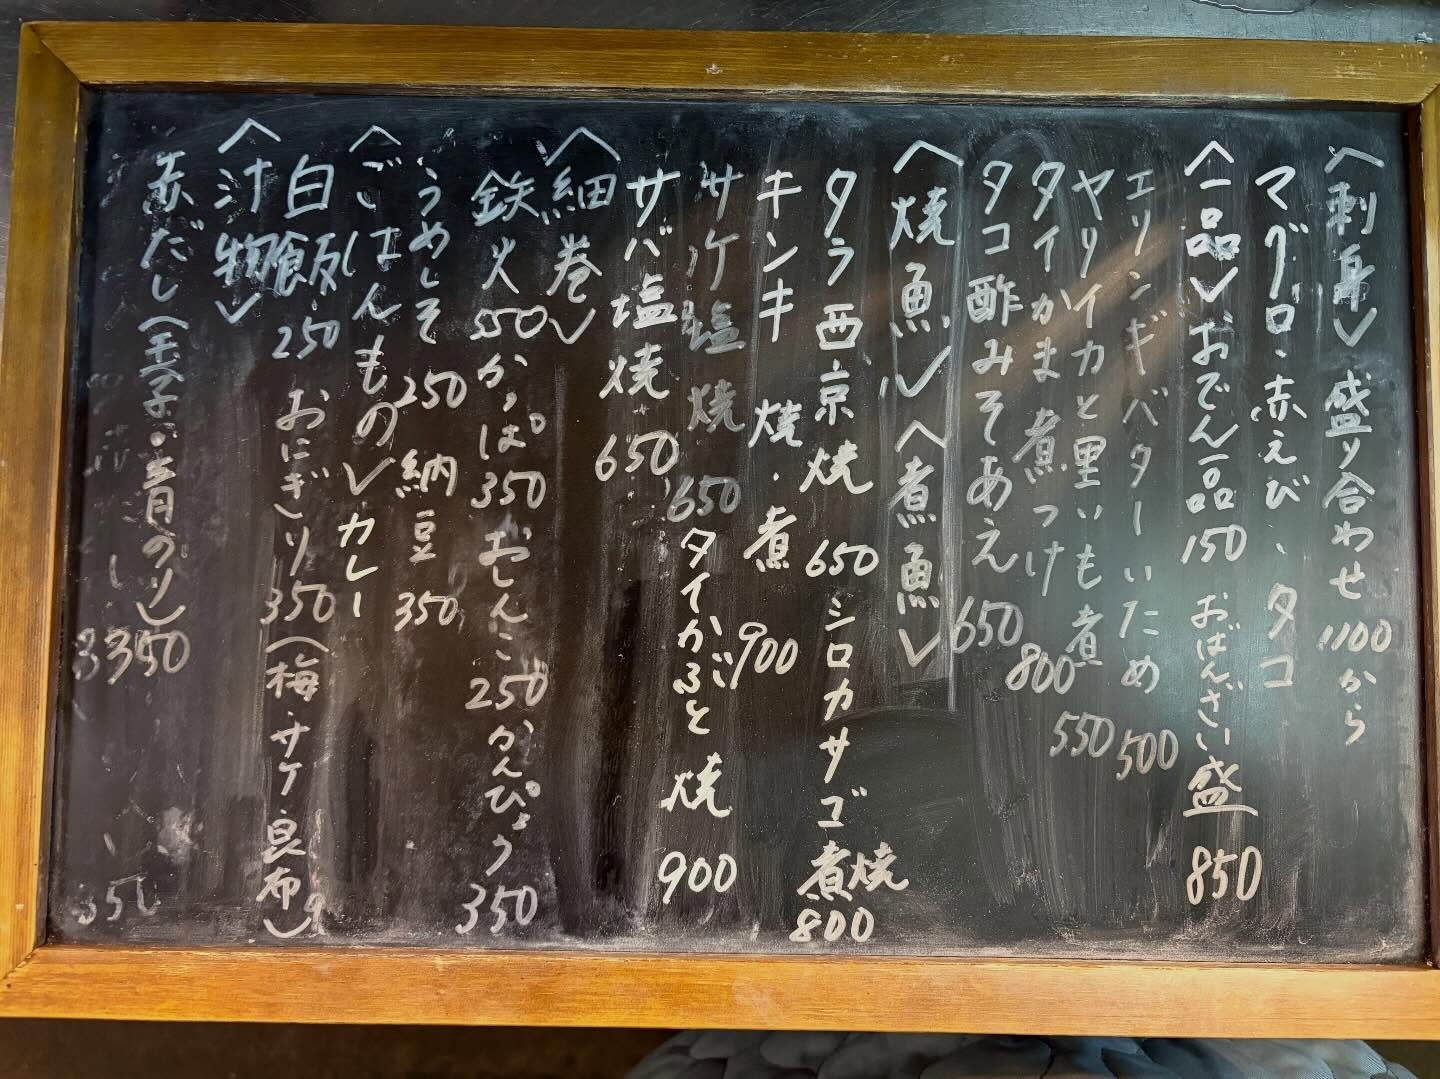 〈刺身〉盛り合わせ1100から
マグロ・赤えび、タコ
〈一品〉おでん一品150 おばんざい盛850
エリンギバターいため500
ヤリイカと里いも煮550
タイかま煮つけ800
タコ酢みそあえ650
〈焼魚〉〈煮魚〉
タラ西京焼650 シロカサゴ煮焼800
キンキ焼・煮900
サケ塩焼650 タイかぶと焼900
サバ塩焼650
〈細巻〉
鉄火550かっぱ350おしんこ250かんぴょう350
うめしそ250 納豆350
〈ごはんもの〉カレー
白飯・250 おにぎり350(梅・サケ・昆布)
〈汁物〉
赤だし(玉子・青のり)350